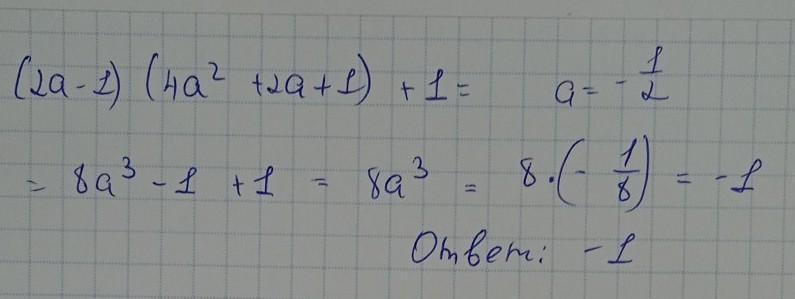 (2a-1) (4a² +2a+1) +1= a= -1/2
= 8a³ -1 +1 = 8a³ = 8·(-1/8) = -1
Ответ: -1